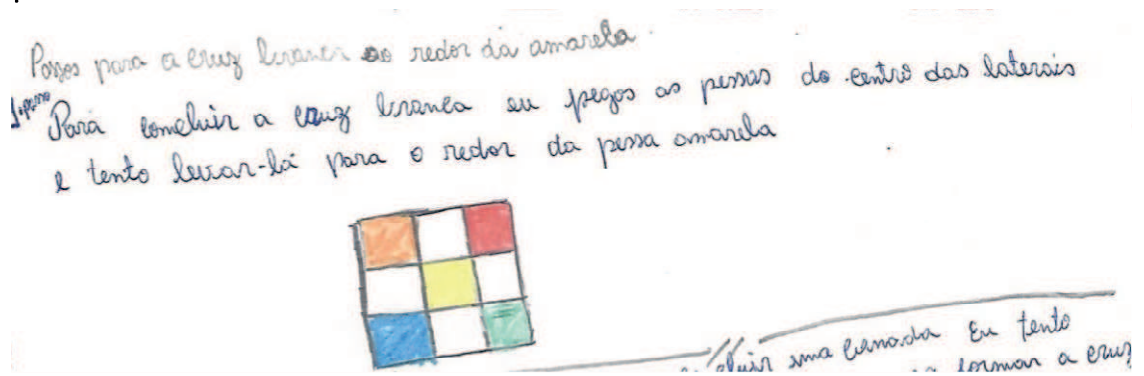 Passos para a cruz branca ao redor da amarela.
1º passo Para concluir a cruz branca eu pegos as pessas do centro das laterais
e tento levar-lá para o redor da pessa amarela
uma camada Eu tento
formar a cruz